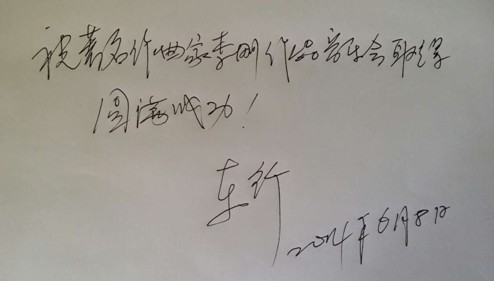 祝著名作曲家李刚作品音乐会取得
圆满成功！
车行
2014年6月8日